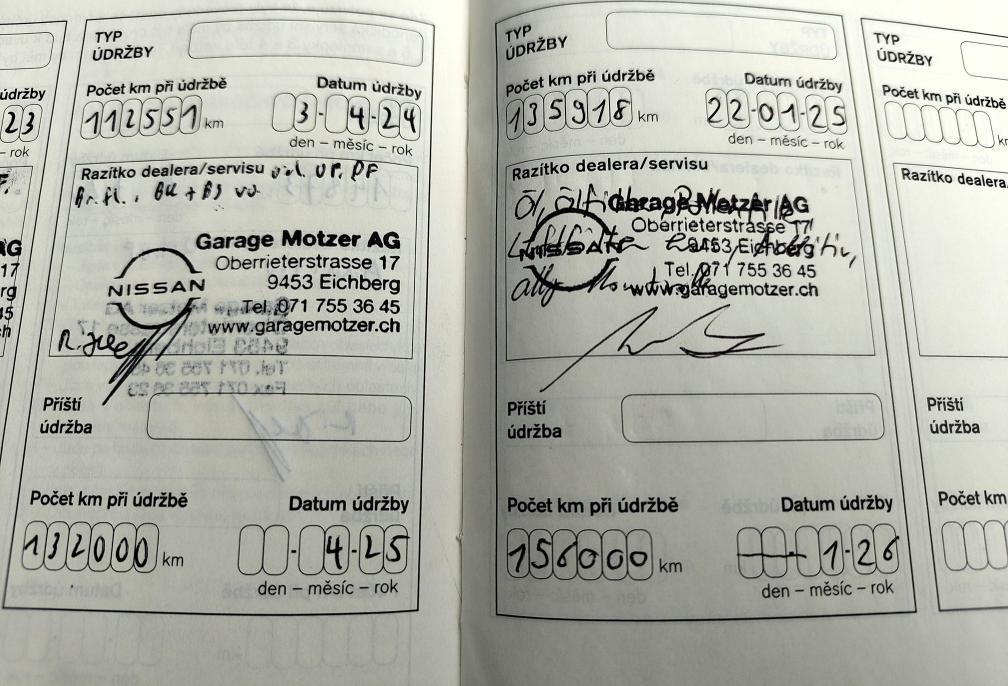 TYP
ÚDRŽBY
Počet km při údržbě
Datum údržby
112551 km
3-4-24
den – měsíc – rok
Razítko dealera/servisu
Garage Motzer AG
Oberrieterstrasse 17
9453 Eichberg
Tel. 071 755 36 45
www.garagemotzer.ch
NISSAN
Příští
údržba
Počet km při údržbě
Datum údržby
132000 km
-4-25
den – měsíc – rok
TYP
ÚDRŽBY
Počet km při údržbě
Datum údržby
135918 km
22-01-25
den – měsíc – rok
Razítko dealera/servisu
Garage Motzer AG
Oberrieterstrasse 17
9453 Eichberg
Tel. 071 755 36 45
www.garagemotzer.ch
NISSAN
Příští
údržba
Počet km při údržbě
Datum údržby
156000 km
1-26
den – měsíc – rok
údržby
23
– rok
AG
17
rg
45
ch
TYP
ÚDRŽBY
Počet km při údržbě
Razítko dealera
Příští
údržba
Počet km